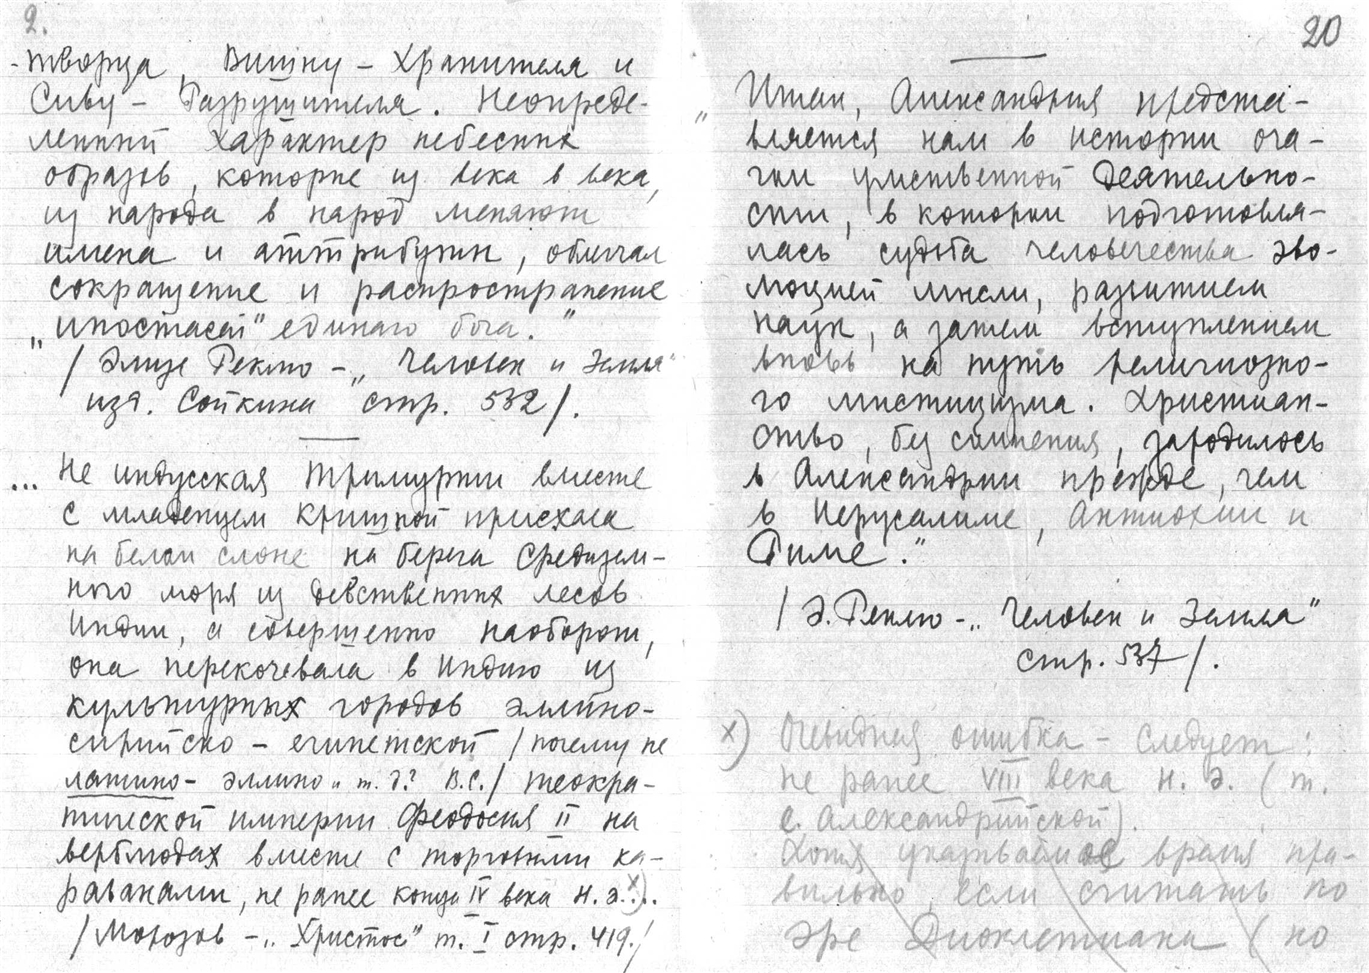 2.
-творца, Вишну – Хранителя и
Сиву – Разрушителя. Неопреде-
ленный характер небесных
образов, которые из века в века,
из народа в народ меняют
имена и аттрибуты, облегчал
сокращение и распространение
„ипостасей" единаго бога."
/ Элизе Реклю – „Человек и Земля"
изд. Сойкина стр. 532/.
... Не индусская Тримурти вместе
с младенцем Кришной приехала
на белом слоне на берега Средизем-
ного моря из девственных лесов
Индии, а совершенно наоборот,
она перекочевала в Индию из
культурных городов эллино-
сирийско – египетской / почему не
латино- эллино „ т. д? В.С./ теокра-
тической империи Феодосия II на
верблюдах вместе с торговыми ка-
раванами, не ранее конца IV века н. э. х)...
/ Морозов – „Христос" т. I стр. 419./
20
„ Итак, Александрия предста-
вляется нам в истории оча-
гом умственной деятельно-
сти, в котором подготовля-
лась судьба человечества эво-
люцией мысли, развитием
наук, а затем вступлением
вновь на путь религиозно-
го мистицизма. Христиан-
ство, без сомнения, зародилось
в Александрии прежде, чем
в Иерусалиме, Антиохии и
Риме."
/ Э. Реклю – „Человек и Земля"
стр. 537/.
х) Очевидная ошибка – следует:
не ранее VIII века н. э. ( т.
е. Александрийской).
Хотя указываемое время пра-
вильно, если считать по
эре Диоклетиана ( но